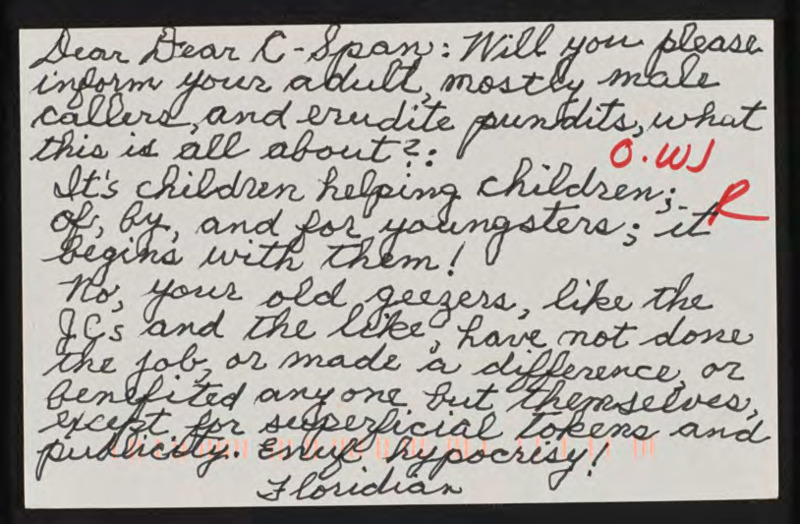 Dear Dear C-Span: Will you please
inform your adult, mostly male
callers, and erudite pundits, what
this is all about?:
O.WJ
It's children helping children;-
R
of, by, and for youngsters; it
begins with them!
No, your old geezers, like the
JCs and the like, have not done
the job, or made a difference, or
benefited anyone but themselves,
except for superficial tokens and
publicity. Enuf hypocrisy!
Floridian